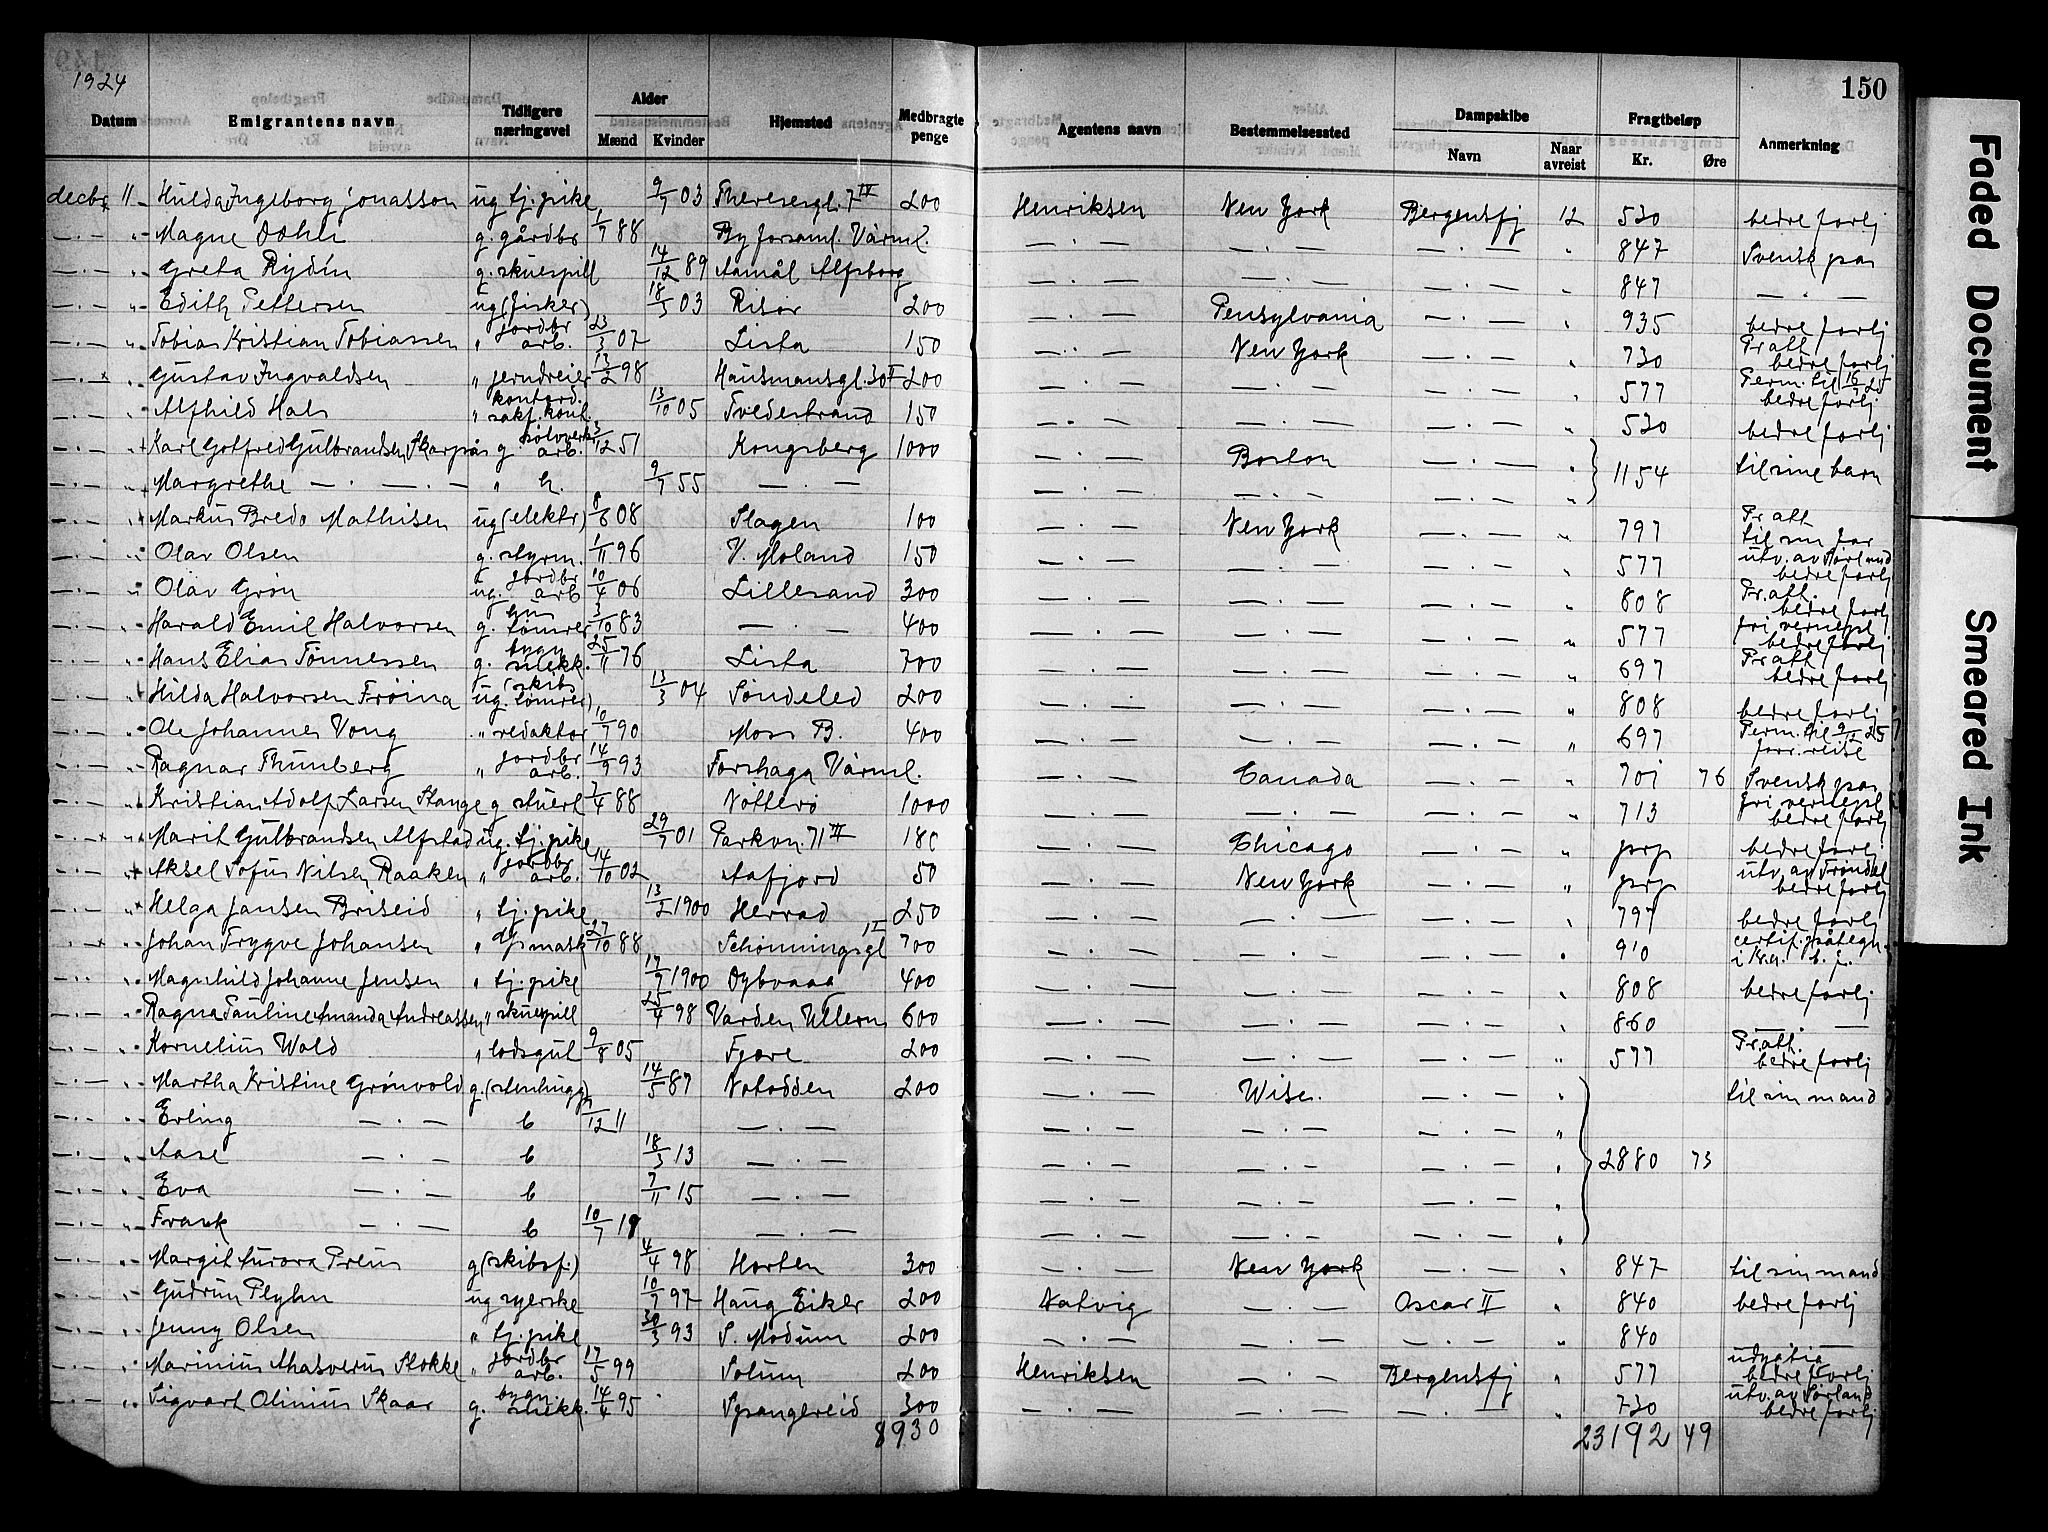 1924
150
Datum Emigrantens navn Tidligere næringsvei Alder Mænd Kvinder Hjemsted Medbragte penge Agentens navn Bestemmelsessted Dampskibe Navn Naar avreist Fragtbeløp Kr. Øre Anmerkning
decbr 11 Hulda Ingeborg Jonasson ug tj. pike 9/7 03 Theresesgt. 7 IV 200 Henriksen New York Bergensfj 12 530 bedre forlj
— . — " Magne g. gårdbr 1/7 88 By forsaml. Värml. — . — — . — — . — " 847 Svensk pas
— . — " Greta Rydén g. skuespill 14/12 89 Aamål Alfsborg — . — — . — — . — " 847 — . —
— . — " Edith Pettersen ug (fisker) 18/3 03 Risør 200 — . — Pensylvania — . — " 935 bedre forlj
— . — " Tobias Kristian Tobiassen " jordbr arb. 23/3 07 Lista 150 — . — New York — . — " 730 Pr att bedre forlj
— . — " Gustav Ingvaldsen " jerndreier 13/2 98 Hausmansgt. 30 II 200 — . — — . — — . — " 577 Perm. til 16/ 25 bedre forlj
— . — " Alfhild Hals " kontord. sakf. kont. 13/10 05 Tvedestrand 150 — . — — . — — . — " 530 bedre forlj
— . — " Karl Gotfred Gulbrandsen Skarpås g sølvverks arb. 3/12 51 Kongsberg 1000 — . — Boston — . — " 1154 til sine barn
— . — " Margrethe — . — . — " h. 9/7 55 — . — — . — — . — — . — "
— . — " Markus Bredo Mathisen ug (elektr) 8/6 08 Slagen 100 — . — New York — . — " 797 Pr att til sin far
— . — " Olav Olsen g. styrm. 1/11 96 V. Moland 150 — . — — . — — . — " 577 utv. av Sørland bedre forlj
— . — " Olav Grøn ug. jordbr arb 10/4 06 Lillesand 300 — . — — . — — . — " 808 Pr. att. bedre forlj
— . — " Harald Emil Halvorsen g. tømrer 3/10 83 — . — 400 — . — — . — — . — " 577 fri vernepl bedre forlj
— . — " Hans Elias Tønnessen g. bygn snekk. 25/11 76 Lista 700 — . — — . — — . — " 697 Pr att bedre forlj
— . — " Hilda Halvorsen Frøina ug. (skibs tømrer) 13/3 04 Søndeled 200 — . — — . — — . — " 808 bedre forlj
— . — " Ole Johannes Vong " redaktør 10/7 90 Moss B. 400 — . — — . — — . — " 697 Perm. til 9/2 25 forr. reise
— . — " Ragnar Thunberg " jordbr arb. 14/9 93 Forshaga Värml. — . — Canada — . — " 701 76 Svensk pas
— . — " Kristian Adolf Larsen Stange g stuert 7/4 88 Nøtterø 1000 — . — — . — — . — " 713 fri vernepl bedre forlj
— . — " Marit Gulbrandsen Alfstad ug. tj. pike 29/7 01 Parkvn. 71 III 180 — . — Chicago — . — " prp bedre forlj
— . — " Aksel Sofus Nilsen Raaken " jordbr arb. 14/10 02 Aafjord 50 — . — New York — . — " prp utv. av Trøndel bedre forlj
— . — " Helga Jansen Briseid " tj. pike 13/2 1900 Herrad 250 — . — — . — — . — " 797 bedre forlj
— . — " Johan Trygve Johansen " mask 27/10 88 Schønningsgt II 700 — . — — . — — . — " 910 certif. påtegn. i Kra. b. f.
— . — " Magnhild Johanne Jensen " tj. pike 17/9 1900 Dybvaag 400 — . — — . — — . — " 808 bedre forlj
— . — " Ragna Pauline Amanda Andreassen " skuespill 25/4 98 Varden Ullern 600 — . — — . — — . — " 860 — . —
— . — " Kornelius Wold " lodsgut 9/8 05 Fjære 200 — . — — . — — . — " 577 Pr att. bedre forlj
— . — " Martha Kristine Grønvold g. (stenhugg) 14/5 87 Notodden 200 — . — Wisc. — . — " til sin mand
— . — " Erling — . — b 9/12 11 — . — — . — — . — — . — "
— . — " Aase — . — b 18/3 13 — . — — . — — . — — . — " 2880 73
— . — " Eva — . — b 7/11 15 — . — — . — — . — — . — "
— . — " Frank — . — b 10/7 19 — . — — . — — . — — . — "
— . — " Margit Aurora Preus g (skibsf.) 4/4 98 Horten 300 — . — New York — . — " 847 til sin mand
— . — " Gudrun Plyhn ug syerske 10/7 97 Haug Eiker 200 Natvig — . — Oscar II " 840 bedre forlj
— . — " Jenny Olsen " tj. pike 30/3 93 S. Modum 200 — . — — . — — . — " 840 — . —
— . — " Marinius Ahasverus Stokke " jordbr arb. 17/5 99 Solum 200 Henriksen — . — Bergensfj " 577 udygtig bedre forlj
— . — " Sigvart Olinius Skaar g. bygn. snekk. 14/4 95 Spangereid 300 — . — — . — — . — " 730 utv. av Sørland bedre forlj
8930 23192 49
Faded Document
Smeared Ink